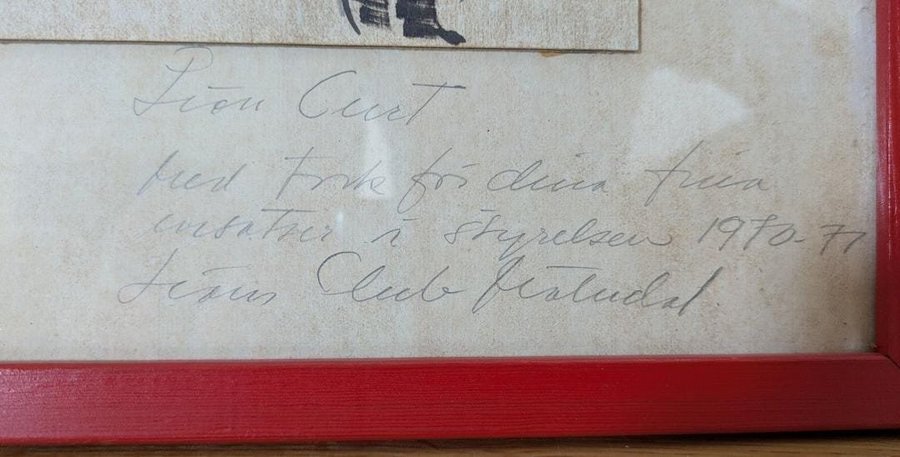 Lion Curt
Med tack för dina fina
insatser i styrelsen 1970-71
Lions Club Mölndal